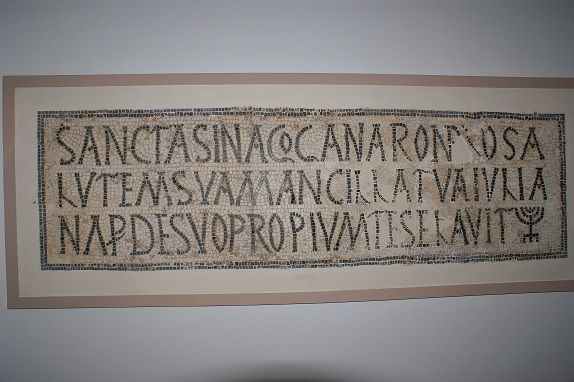 SANCTASINAGOGANARONPROSA
LVTEMSVAMANCILLATVAIVLIA
NAPDESVOPROPIVMTESELAVIT